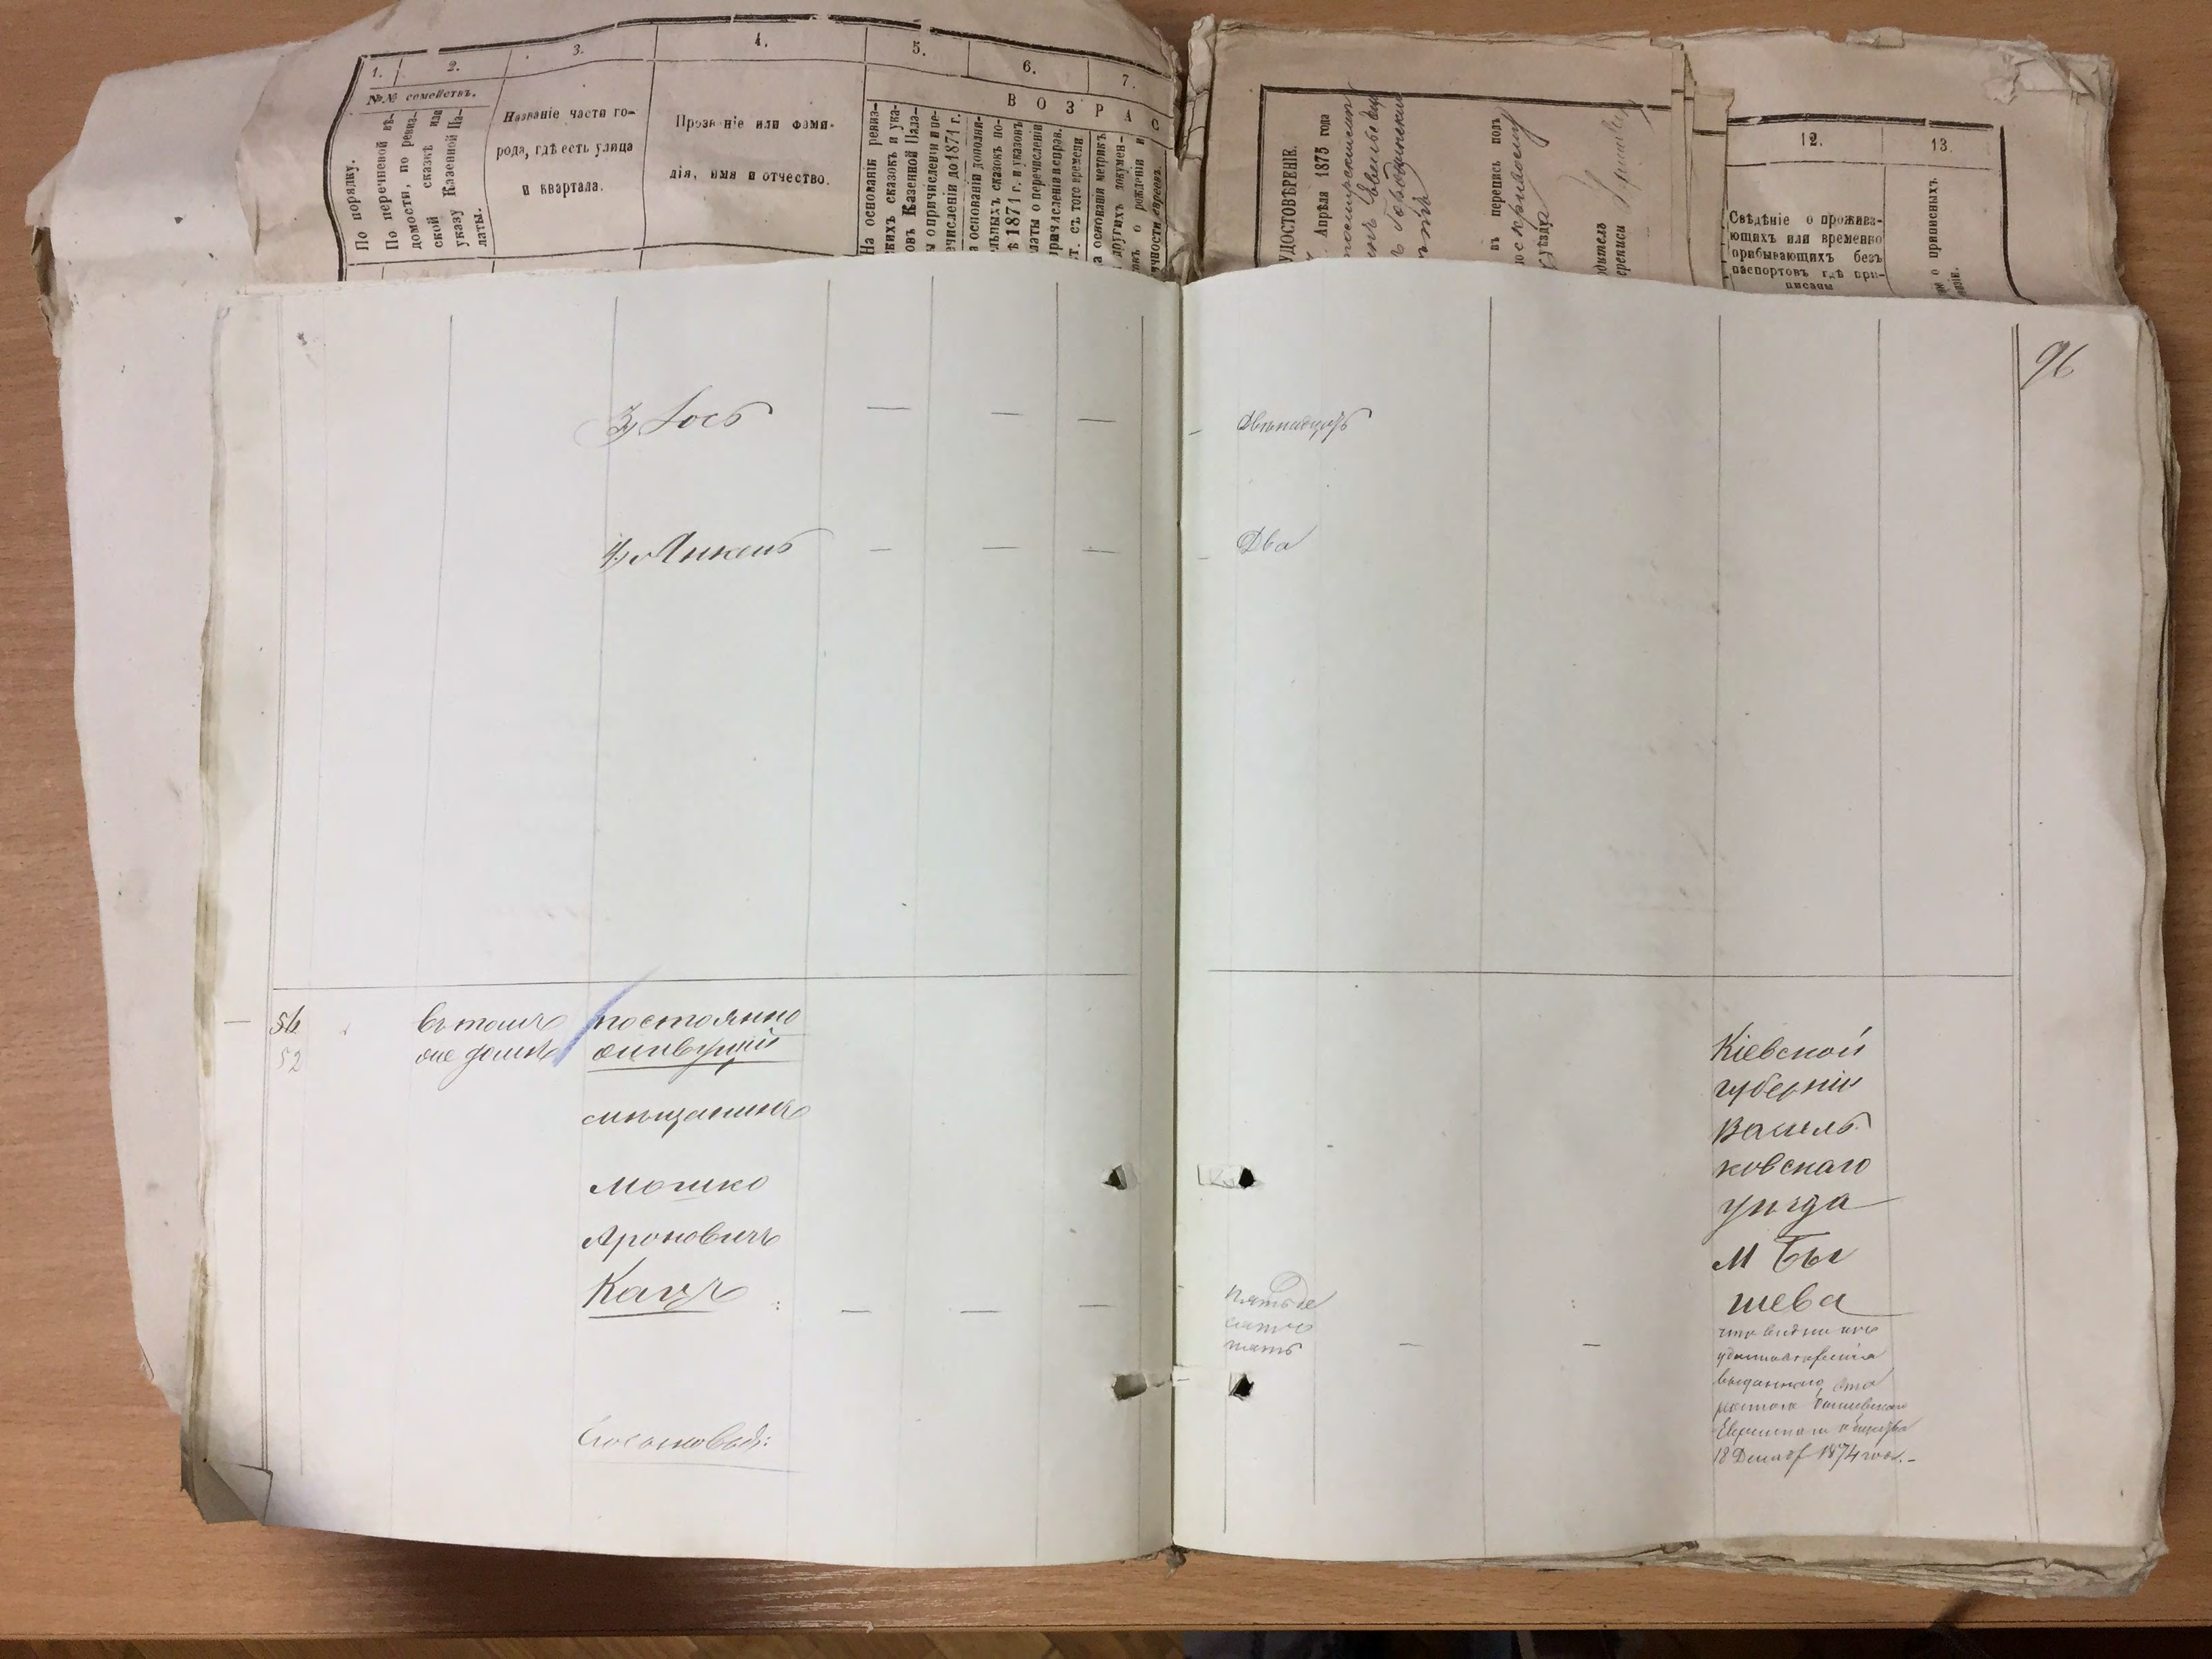 1.
2.
3.
4.
5.
6.
7
№№ семействъ.
По порядку.
По перечневой вѣ-
домости, по ревиз-
ской сказкѣ или
указу Казенной Па-
латы.
Названіе части го-
рода, гдѣ есть улица
и квартала.
Прозваніе или фами-
лія, имя и отчество.
ВОЗРАС
На основаніи ревиз-
скихъ сказокъ и ука-
овъ Казенной Пала-
ы о причисленіи и пе-
ечисленіи до 1871 г.
а основаніи дополни-
льныхъ сказокъ по-
ѣ 1871 г. и указовъ
латы о перечисленіи
ричисленіи исправ.
т. съ того времени.
а основаніи метрикъ
другихъ докумен-
овъ о рожденіи и
ичности евреевъ.
УДОСТОВѢРЕНІЕ.
Апрѣля 1875 года
въ перепись полъ
уѣзда
одитель
ереписи
12.
13.
Свѣдѣніе о прожива-
ющихъ или временно
прибывающихъ безъ
паспортовъ гдѣ при-
писаны
е о приписныхъ
96
3) Іосъ
— — — —
Двѣнадцать
4) Янкель
— — — —
Два
— 56
52
Въ томъ
же домѣ
постоянно
живущій
мѣщанинъ
Мошко
Ароновичъ
Кацъ
— — —
Пятьде
сятъ
пять
— —
Кіевской
губерніи
Василь
ковскаго
уѣзда
М Бы
шева
что видно изъ
удостовѣренія
выданнаго ста
ростою Бышевскаго
Еврейскаго общества
18 Декабр 1874 года.–